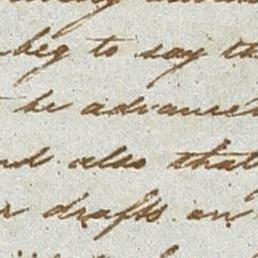 beg to say th
be advance
nd also that
r drafts on